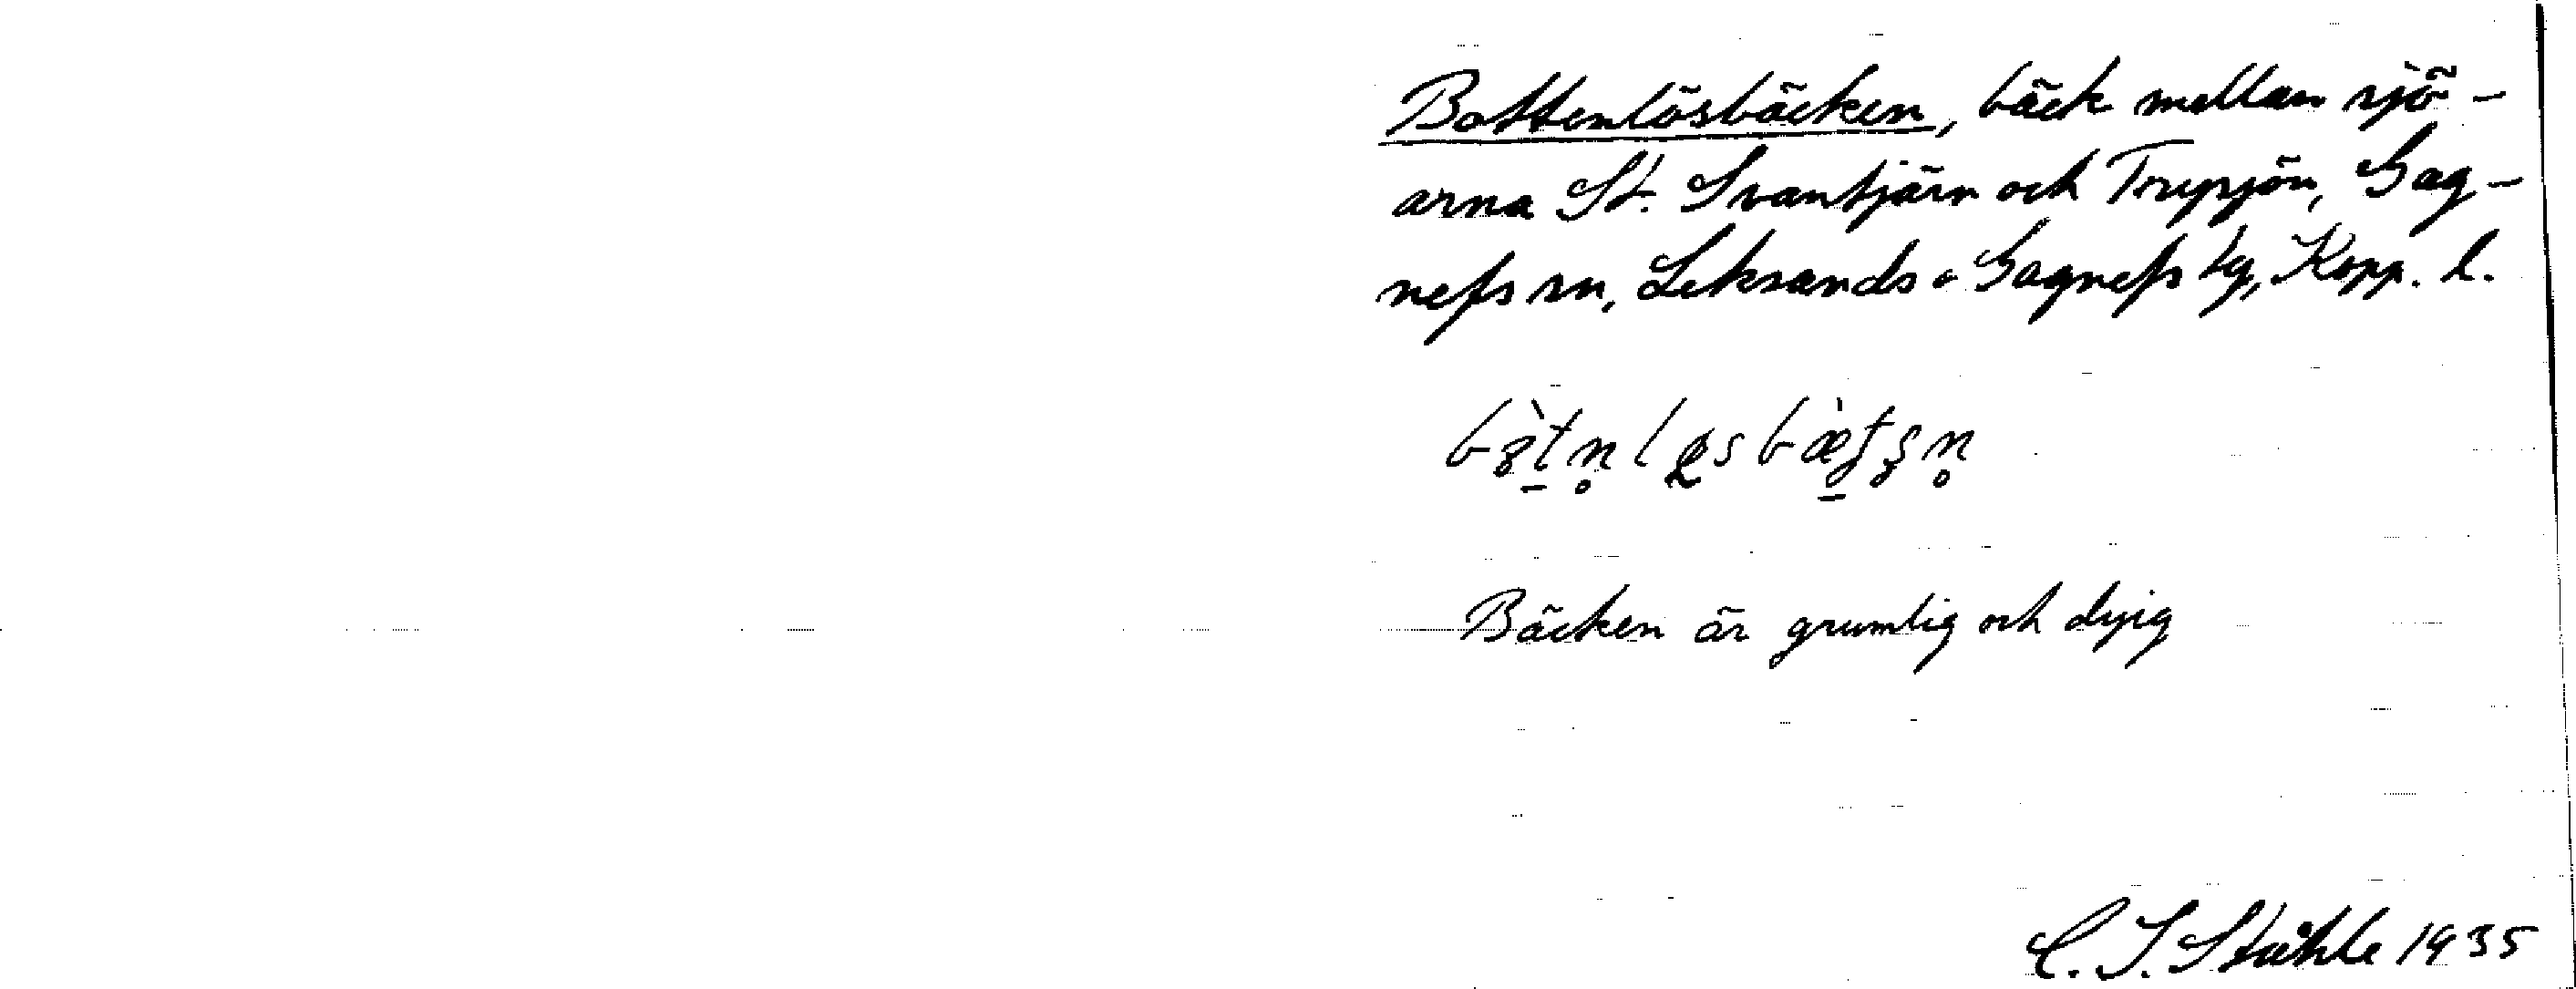 Bottenlösbäcken, bäck mellan sjö-
arna St. Svantjärn och Trysjön, Gag-
nefs sn, Leksands o Gagnefs tg, Kopp. l.
Bäcken är grumlig och dyig
C. I. Ståhle 1935